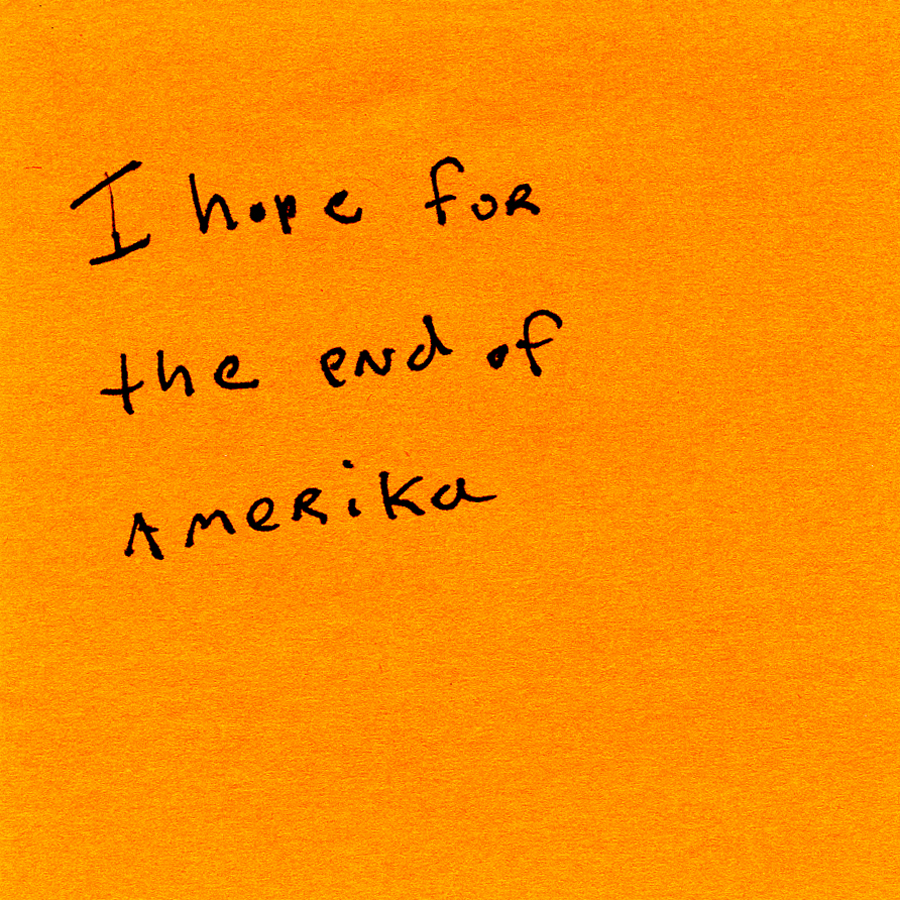 I hope for
the end of
Amerika